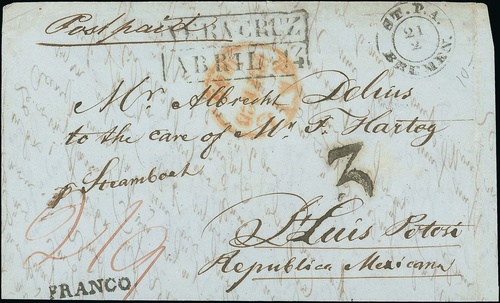 Postpaid
VERACRUZ
ABRIL 14
ST. P. A.
21
2
BREMEN.
Mr Albrecht Delius
to the care of Mr F. Hartog
pr Steamboat
3
St Luis Potosi
Republica Mexicana
2/9
FRANCO